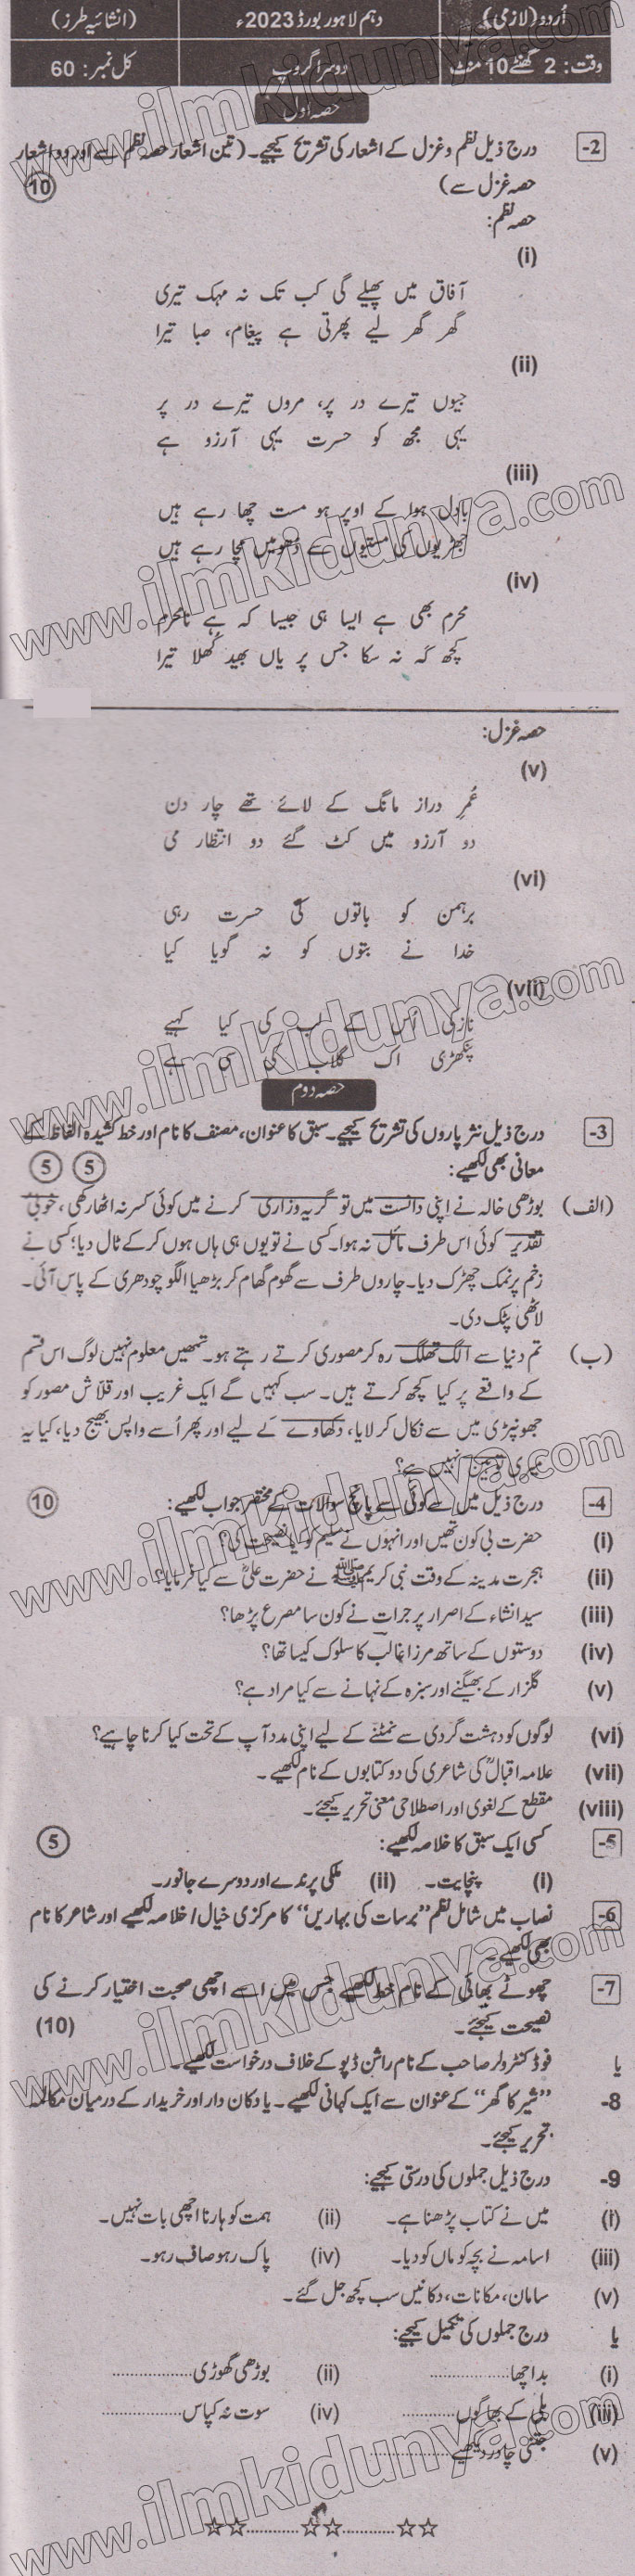 اُردو (لازمی)
دہم لاہور بورڈ 2023ء
(انشائیہ طرز)
وقت: 2 گھنٹے 10 منٹ
دوسرا گروپ
کل نمبر: 60
حصہ اول
2- درج ذیل نظم و غزل کے اشعار کی تشریح کیجیے۔ (تین اشعار حصہ نظم سے اور دو اشعار
حصہ غزل سے) 10
حصہ نظم:
(i)
آفاق میں پھیلے گی کب تک نہ مہک تیری
گھر گھر لیے پھرتی ہے پیغام، صبا تیرا
(ii)
جیوں تیرے در پر، مروں تیرے در پر
یہی مجھ کو حسرت یہی آرزو ہے
(iii)
بادل ہوا کے اوپر ہو مست چھا رہے ہیں
جھڑیوں کی مستیوں سے دھومیں مچا رہے ہیں
(iv)
محرم بھی ہے ایسا ہی جیسا کہ ہے نامحرم
کچھ کہ نہ سکا جس پر یاں بھید کھلا تیرا
حصہ غزل:
(v)
عُمرِ دراز مانگ کے لائے تھے چار دن
دو آرزو میں کٹ گئے دو انتظار می
(vi)
برہمن کو باتوں کی حسرت رہی
خدا نے بتوں کو نہ گویا کیا
(vii)
نازکی اس کے لب کی کیا کہیے
پنکھڑی اک گلاب کی سی ہے
حصہ دوم
3- درج ذیل نثر پاروں کی تشریح کیجیے۔ سبق کا عنوان، مصنف کا نام اور خط کشیدہ الفاظ کے
معانی بھی لکھیے: 5 5
(الف) بوڑھی خالہ نے اپنی دانست میں تو گریہ وزاری کرنے میں کوئی کسر نہ اٹھا رکھی، خوبیٔ
تقدیر کوئی اس طرف مائل نہ ہوا۔ کسی نے تو یوں ہی ہاں ہوں کر کے ٹال دیا؛ کسی نے
زخم پر نمک چھڑک دیا۔ چاروں طرف سے گھوم گھام کر بڑھیا الگو چودھری کے پاس آئی۔
لاٹھی پٹک دی۔
(ب) تم دنیا سے الگ تھلگ رہ کر مصوری کرتے رہتے ہو۔ تمھیں معلوم نہیں لوگ اس قسم
کے واقعے پر کیا کچھ کرتے ہیں۔ سب کہیں گے ایک غریب اور قلاش مصور کو
جھونپڑی میں سے نکال کر لایا، دکھاوے کے لیے اور پھر اُسے واپس بھیج دیا، کیا یہ
میری توہین نہیں ہے؟
4- درج ذیل میں سے کوئی سے پانچ سوالات کے مختصر جواب لکھیے: 10
(i) حضرت بی کون تھیں اور انہوں نے سلیم کو کیا نصیحت کی؟
(ii) ہجرت مدینہ کے وقت نبی کریم ﷺ نے حضرت علیؓ سے کیا فرمایا؟
(iii) سید انشاء کے اصرار پر جرات نے کون سا مصرع پڑھا؟
(iv) دوستوں کے ساتھ مرزا غالب کا سلوک کیسا تھا؟
(v) گلزار کے بھیگنے اور سبزہ کے نہانے سے کیا مراد ہے؟
(vi) لوگوں کو دہشت گردی سے نمٹنے کے لیے اپنی مدد آپ کے تحت کیا کرنا چاہیے؟
(vii) علامہ اقبالؒ کی شاعری کی دو کتابوں کے نام لکھیے۔
(viii) مقطع کے لغوی اور اصطلاحی معنی تحریر کیجئے۔
5- کسی ایک سبق کا خلاصہ لکھیے: 5
(i) پنچایت۔ (ii) ملکی پرندے اور دوسرے جانور۔
6- نصاب میں شامل نظم "برسات کی بہاریں" کا مرکزی خیال / خلاصہ لکھیے اور شاعر کا نام
بھی لکھیے۔
7- چھوٹے بھائی کے نام خط لکھیے جس میں اسے اچھی صحبت اختیار کرنے کی
نصیحت کیجئے۔ (10)
یا فوڈ کنٹرولر صاحب کے نام راشن ڈپو کے خلاف درخواست لکھیے۔
8- "شیر کا گھر" کے عنوان سے ایک کہانی لکھیے۔ یا دکان دار اور خریدار کے درمیان مکالمہ
تحریر کیجئے۔
9- درج ذیل جملوں کی درستی کیجیے:
(i) میں نے کتاب پڑھنا ہے۔ (ii) ہمت کو ہارنا اچھی بات نہیں۔
(iii) اسامہ نے بچہ کو ماں کو دیا۔ (iv) پاک رہو صاف رہو۔
(v) سامان، مکانات، دکانیں سب کچھ جل گئے۔
یا درج جملوں کی تکمیل کیجیے:
(i) بد اچھا.................. (ii) بوڑھی گھوڑی..................
(iii) بلی کے بھاگوں............ (iv) سوت نہ کپاس..................
(v) جتنی چادر دیکھیے..................
☆☆...........☆☆...........☆☆
www.ilmkidunya.com
www.ilmkidunya.com
www.ilmkidunya.com
www.ilmkidunya.com
www.ilmkidunya.com
www.ilmkidunya.com